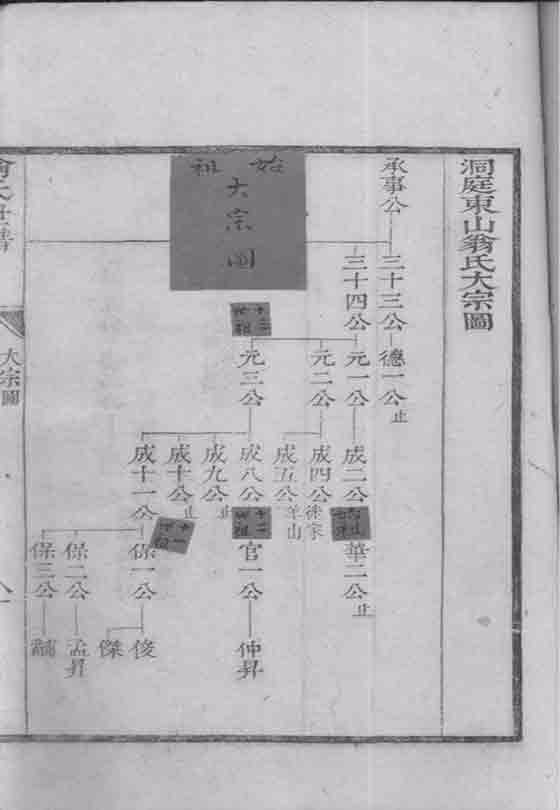 洞庭東山翁氏大宗圖
承事公
三十三公
德一公止
三十四公
元一公
成二公
華二公止
元二公
成四公徙家
成五公羊山
元三公
成八公
官一公
仲昇
成九公止
成十公止
成十一公
保一公
俊
傑
保二公
孟昇
保三公
始祖
大宗圖
大宗圖